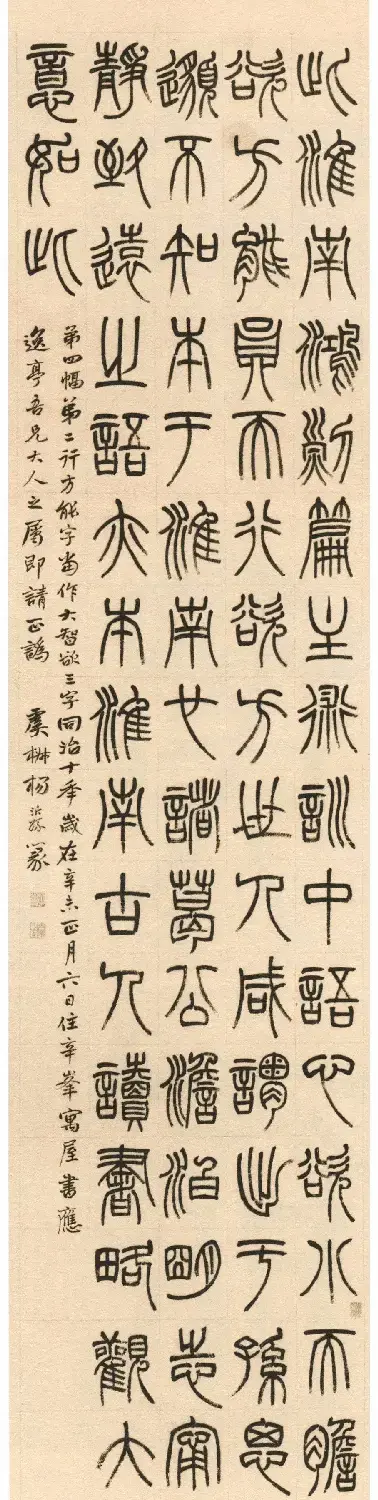 此淮南鴻烈篇主術訓中語心欲小而膽
欲方能員而行欲方世人咸謂出于孫思
邈不知本于淮南又諸葛公澹泊明志甯
靜致遠之語亦本淮南古人讀書略觀大
意如此
第四幅第二行方能字當作大智欲三字同治十年歲在辛未正月六日住辛峯寓屋書應
逸亭吾兄大人之屬即請正譌 虞 楊沂孫篆